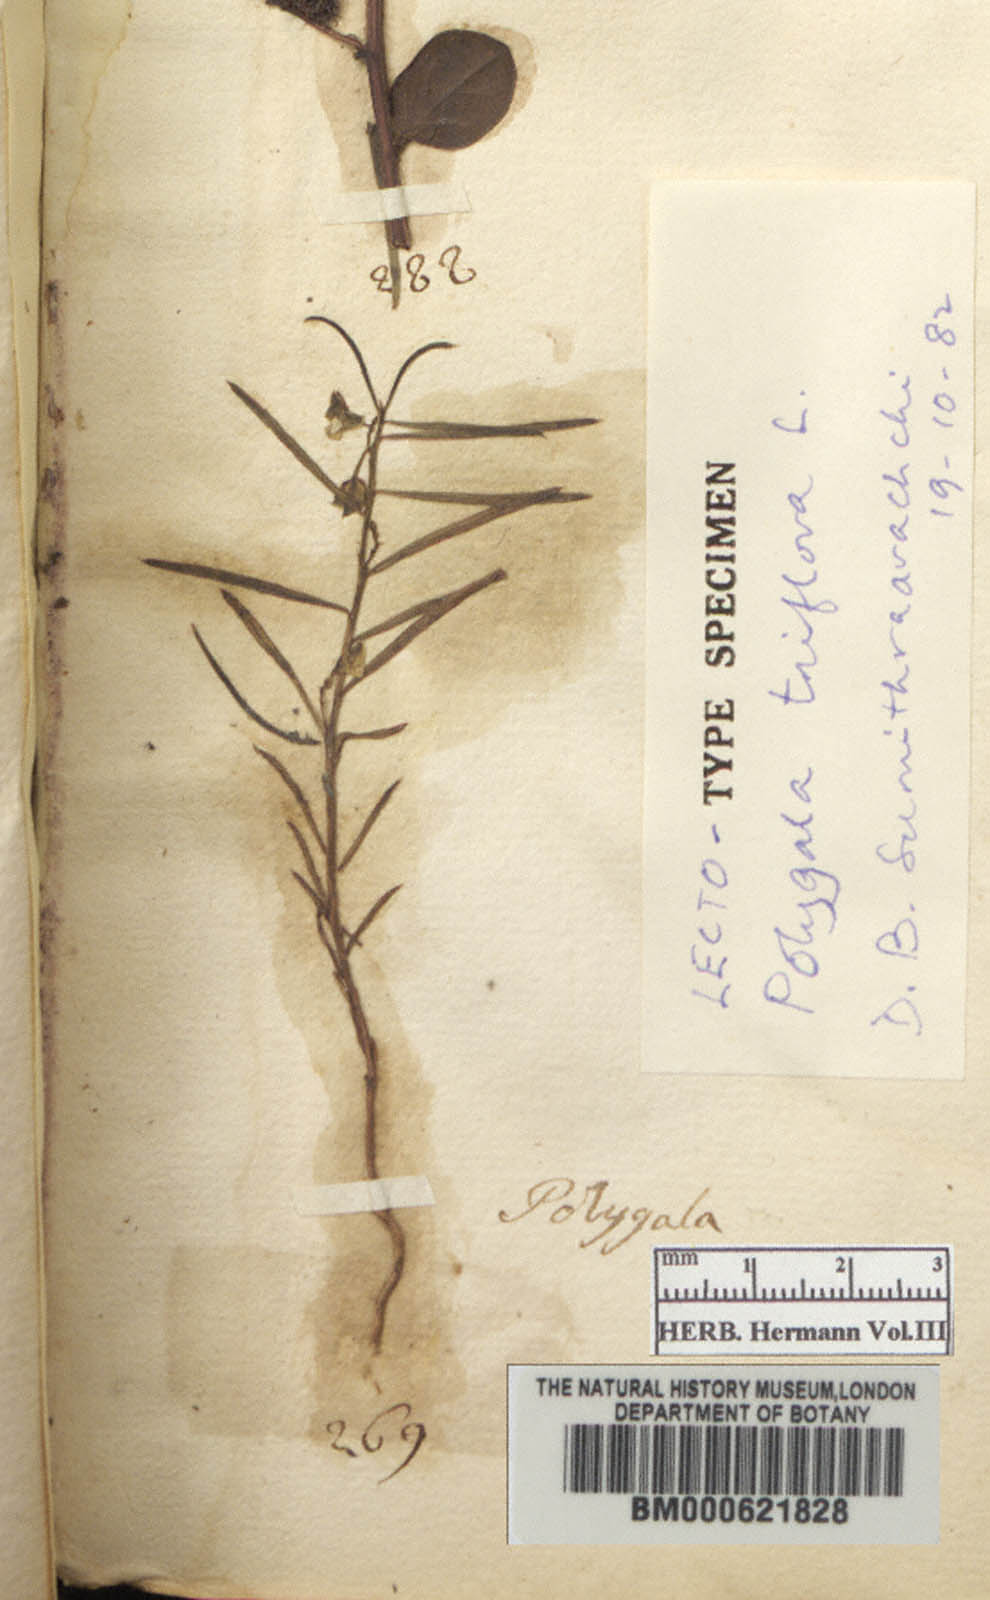 288
LECTO - TYPE SPECIMEN
Polygala triflora L.
D. B. Sumithraarachchi
19-10-82
Polygala
mm 1 2 3
HERB. Hermann Vol.III
THE NATURAL HISTORY MUSEUM, LONDON
DEPARTMENT OF BOTANY
BM000621828
269